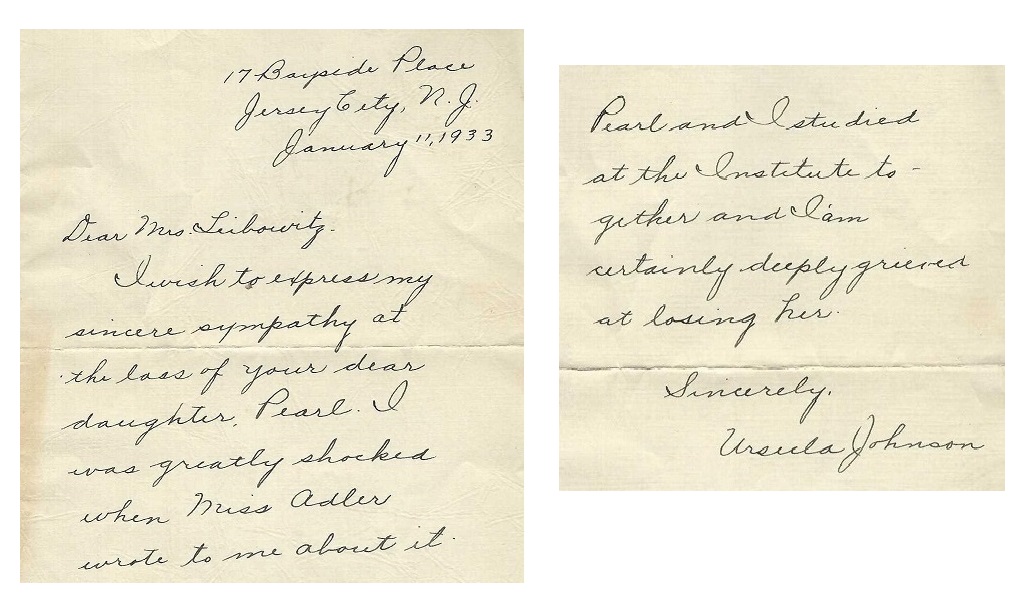 17 Bayside Place
Jersey City, N.J.
January 11, 1933
Dear Mrs. Leibowitz.
I wish to express my
sincere sympathy at
the loss of your dear
daughter, Pearl. I
was greatly shocked
when Miss Adler
wrote to me about it.
Pearl and I studied
at the Institute to-
gether and I am
certainly deeply grieved
at losing her.
Sincerely,
Ursula Johnson